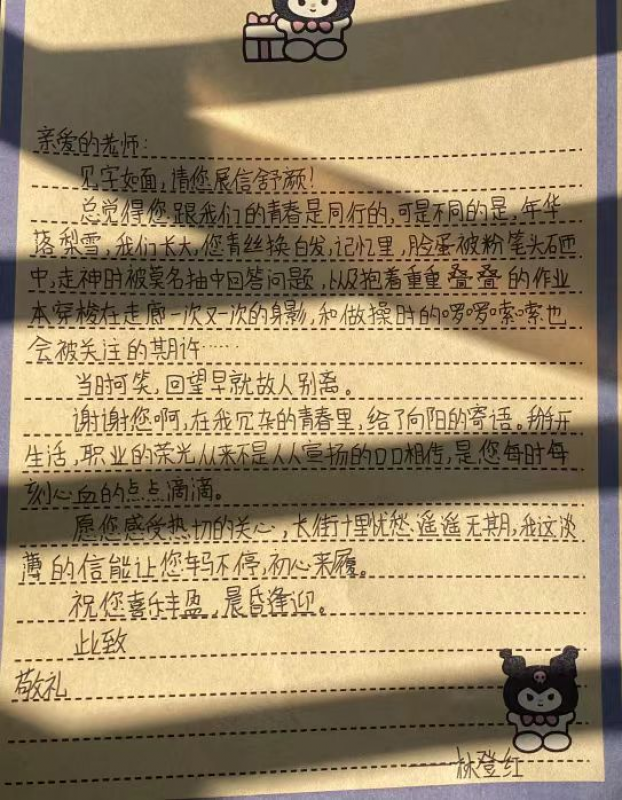 亲爱的老师：
见字如面，请您展信舒颜！
总觉得您跟我们的青春是同行的，可是不同的是，年华
落梨雪，我们长大，您青丝换白发，记忆里，脸蛋被粉笔头砸
中，走神时被莫名抽中回答问题，以及抱着重重叠叠的作业
本穿梭在走廊一次又一次的身影，和做操时的啰啰嗦嗦也
会被关注的期许……
当时可笑，回望早就故人别离。
谢谢您啊，在我冗杂的青春里，给了向阳的寄语。掰开
生活，职业的荣光从来不是人人宣扬的口口相传，是您每时每
刻心血的点点滴滴。
愿您感受热切的关心，长街十里忧愁遥遥无期，我这淡
薄的信能让您车马不停，初心来履。
祝您喜乐丰盈，晨昏逢迎。
此致
敬礼
——林登红